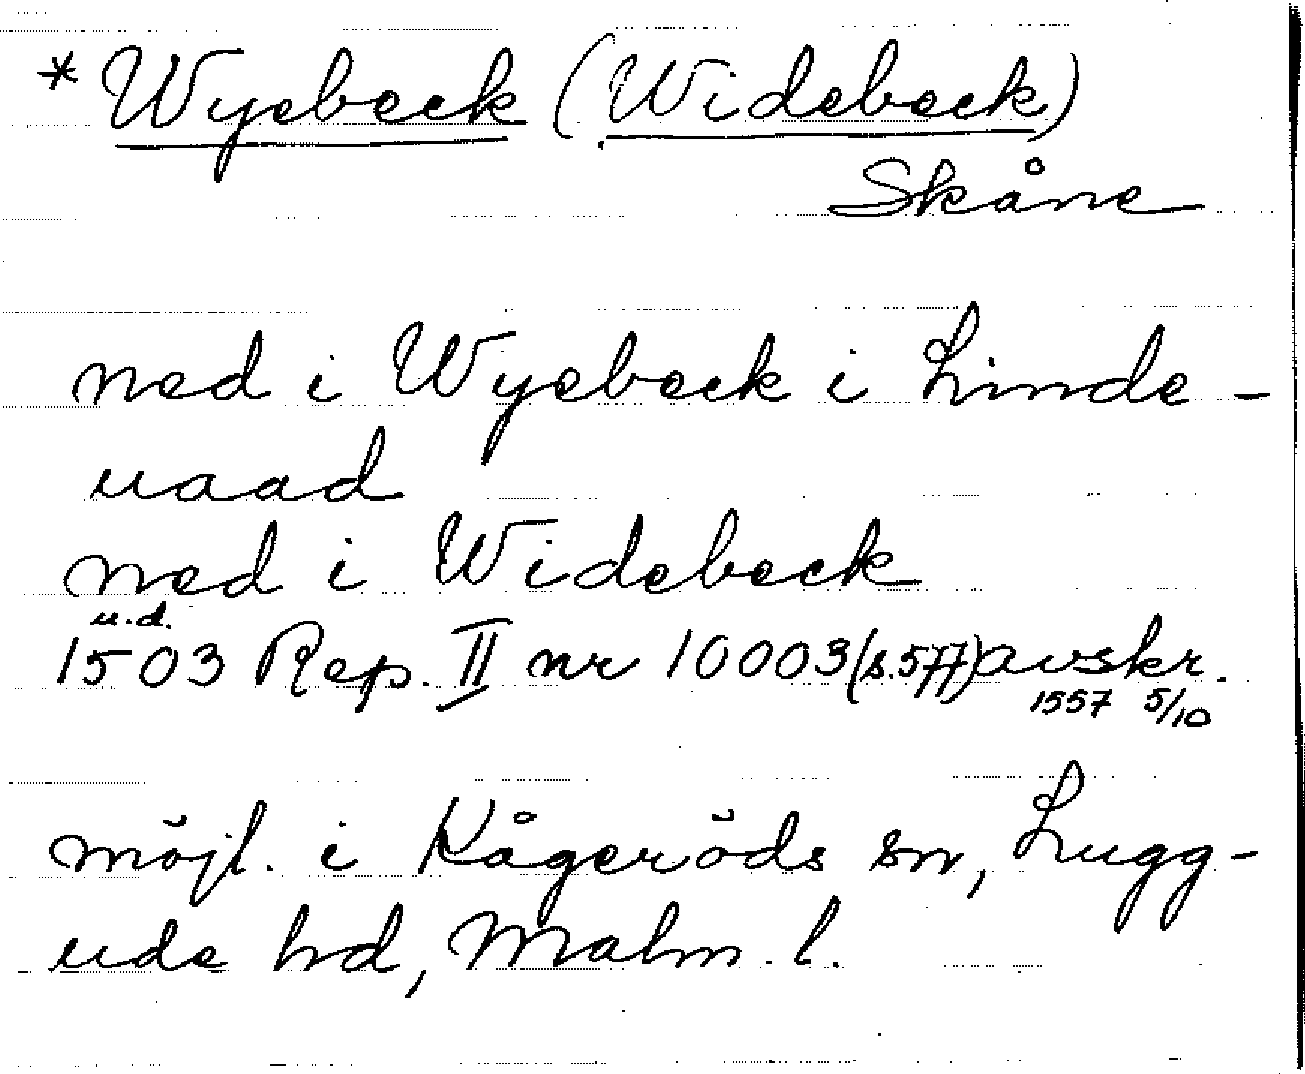 * Wyebeck (Widebeck)
Skåne
ned i Wyebeck i Linde-
uaad
ned i Widebeck
u.d.
1503 Rep. II nr 10003 (s.577) avskr.
1557 5/10
möjl. i Kågeröds sn, Lugg-
ude hd, Malm. l.